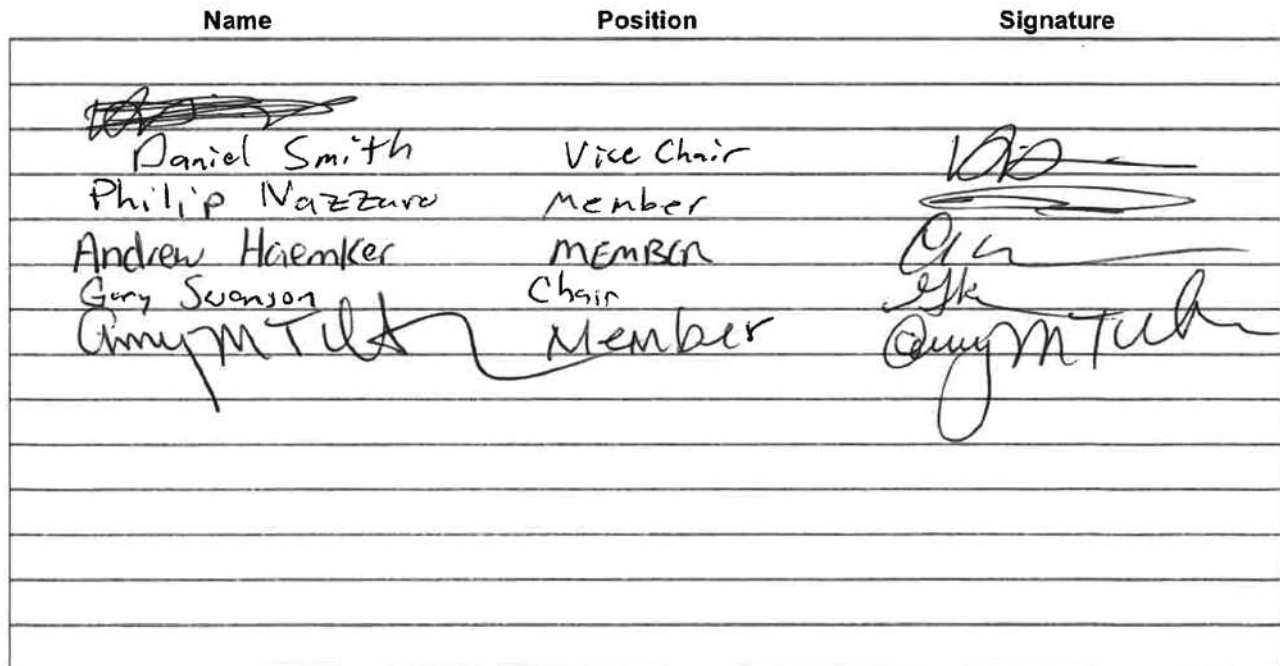 Name Position Signature
Daniel Smith Vice Chair
Philip Nazzaro Member
Andrew Haemker MEMBER
Gary Swanson Chair
Amy M Member Amy M